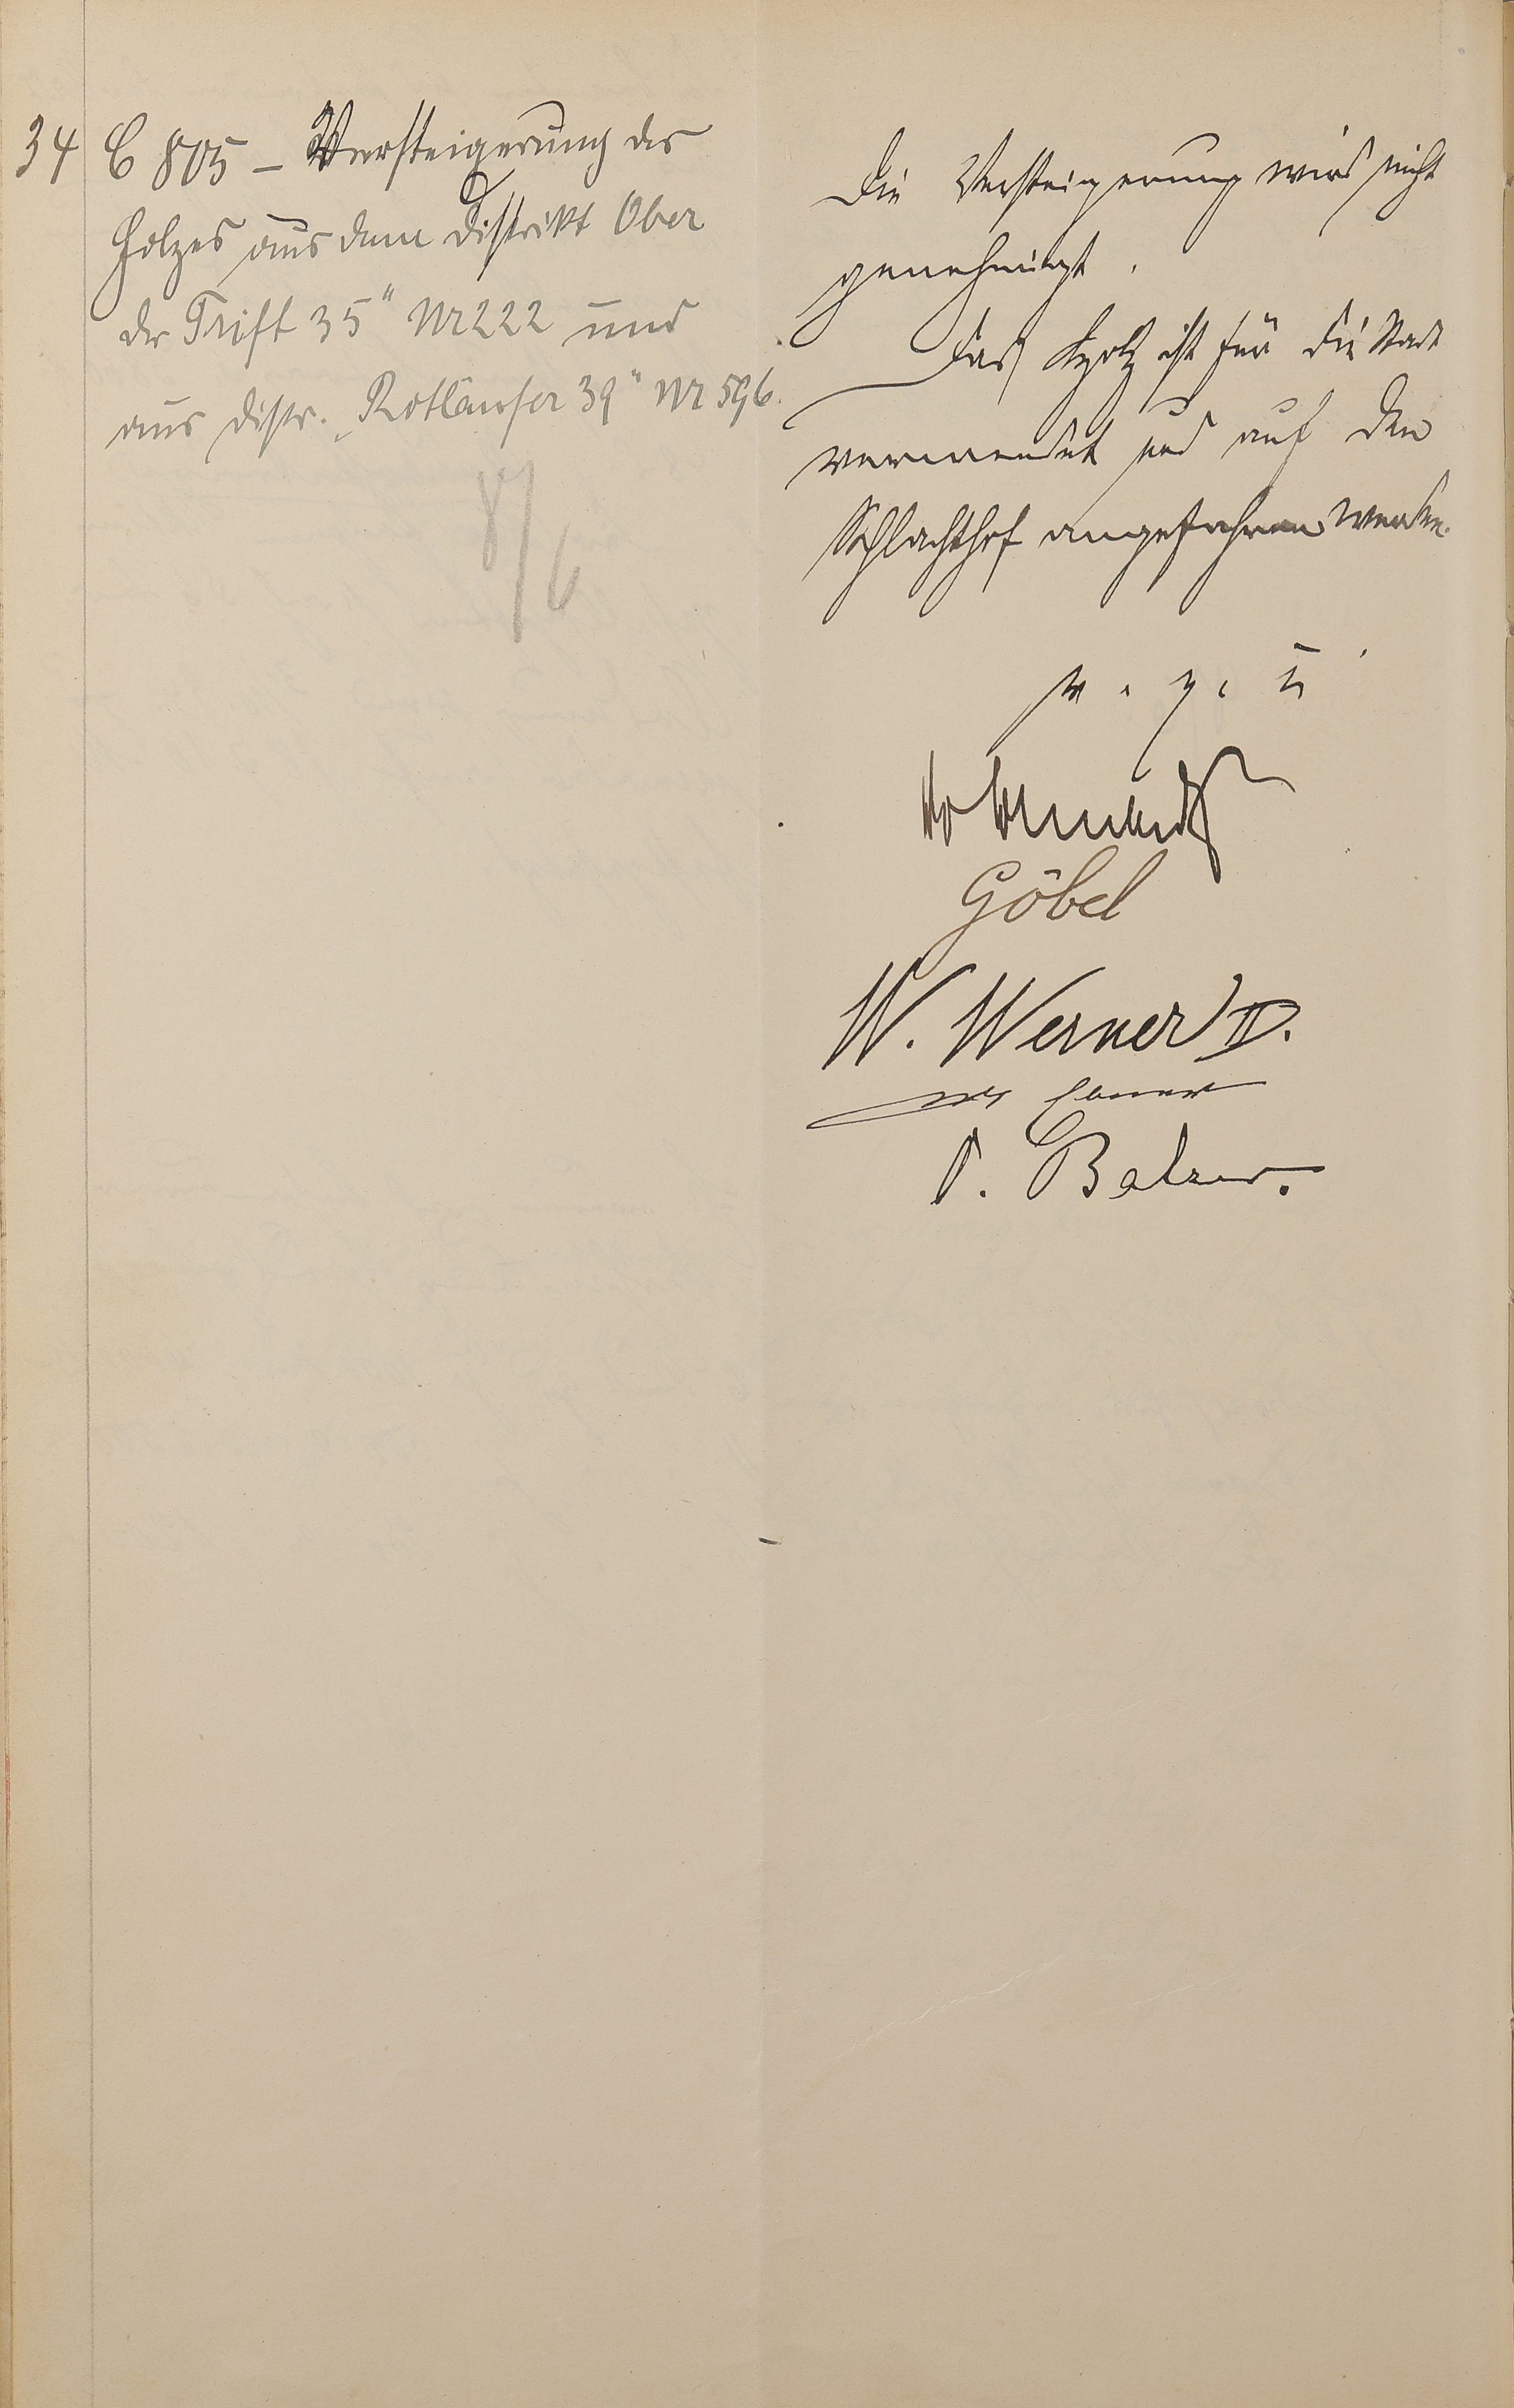 34 C 805 – Versteigerung des
Holzes aus dem Distrikt Ober
der Trift 35" Nr 222 und
aus Distr. „Rotläufer 39" Nr 596.
8/6
Die Versteigerung wird nicht
genehmigt.
Das Holz ist für die Stadt
verwendet und auf den
Schlachthof angefahren werden.
v. g. u.
Göbel
W. Werner II.
Balzer.